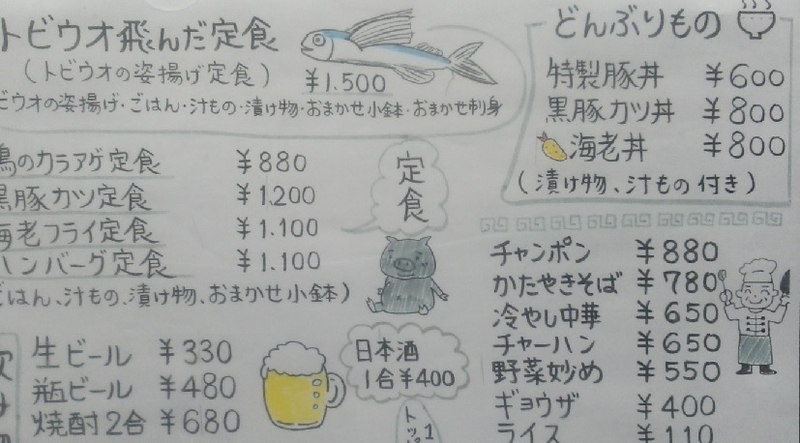 トビウオ飛んだ定食
(トビウオの姿揚げ定食)
¥1,500
ビウオの姿揚げ・ごはん・汁もの・漬け物・おまかせ小鉢・おまかせ刺身
鶏のカラアゲ定食 ¥880
黒豚カツ定食 ¥1,200
海老フライ定食 ¥1,100
ハンバーグ定食 ¥1,100
ごはん、汁もの、漬け物、おまかせ小鉢)
定食
生ビール ¥330
瓶ビール ¥480
焼酎2合 ¥680
日本酒
1合¥400
どんぶりもの
特製豚丼 ¥600
黒豚カツ丼 ¥800
海老丼 ¥800
(漬け物、汁もの付き)
チャンポン ¥880
かたやきそば ¥780
冷やし中華 ¥650
チャーハン ¥650
野菜炒め ¥550
ギョウザ ¥400
ライス ¥110